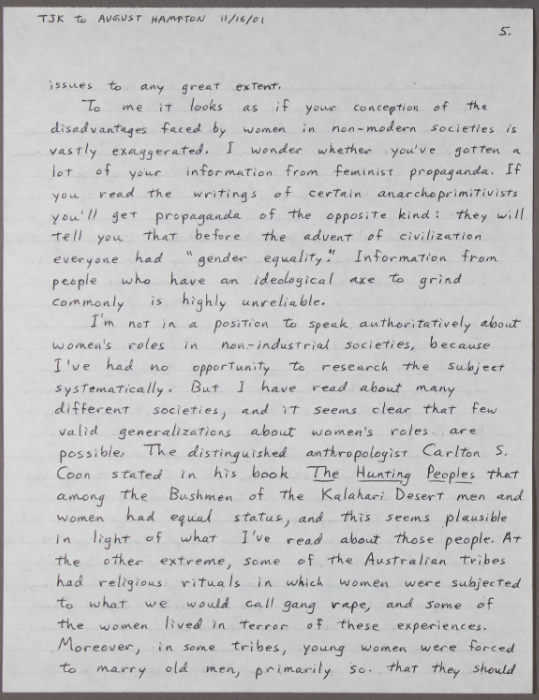 TJK to AUGUST HAMPTON 11/16/01
5.
issues to any great extent.
To me it looks as if your conception of the
disadvantages faced by women in non-modern societies is
vastly exaggerated. I wonder whether you've gotten a
lot of your information from feminist propaganda. If
you read the writings of certain anarchoprimitivists
you'll get propaganda of the opposite kind: they will
tell you that before the advent of civilization
everyone had "gender equality." Information from
people who have an ideological axe to grind
commonly is highly unreliable.
I'm not in a position to speak authoritatively about
women's roles in non-industrial societies, because
I've had no opportunity to research the subject
systematically. But I have read about many
different societies, and it seems clear that few
valid generalizations about women's roles are
possible. The distinguished anthropologist Carlton S.
Coon stated in his book The Hunting Peoples that
among the Bushmen of the Kalahari Desert men and
women had equal status, and this seems plausible
in light of what I've read about those people. At
the other extreme, some of the Australian tribes
had religious rituals in which women were subjected
to what we would call gang rape, and some of
the women lived in terror of these experiences.
Moreover, in some tribes, young women were forced
to marry old men, primarily so that they should